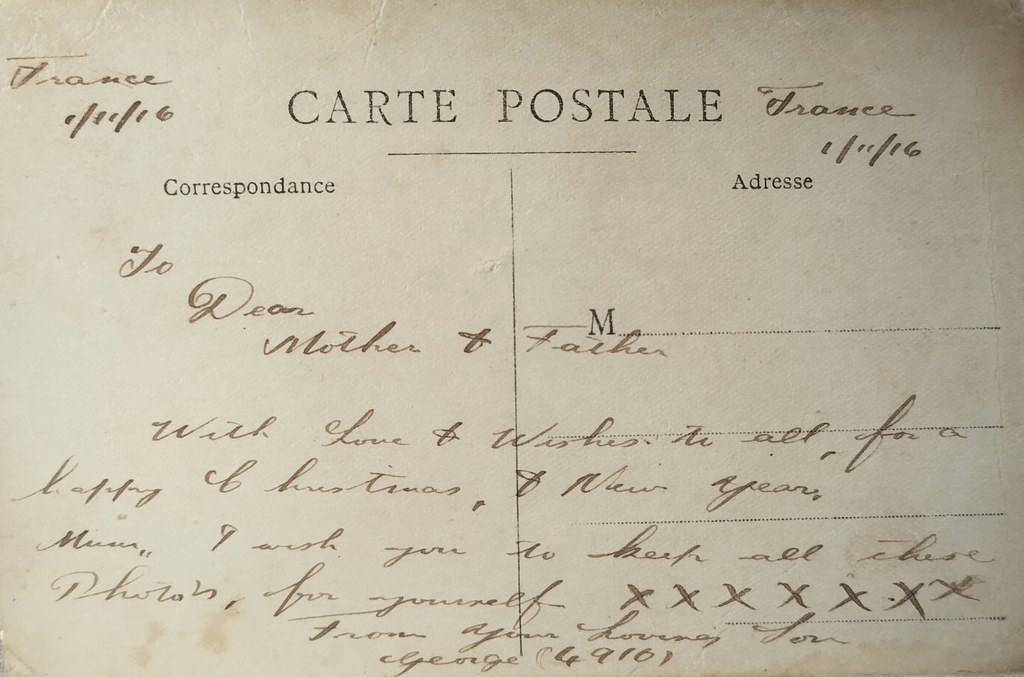 France
1/11/16
CARTE POSTALE
France
1/11/16
Correspondance
Adresse
To
Dear
M
Mother & Father
With Love & Wishes to all, for a
happy Christmas, & New Year,
Mum,, I wish you to keep all these
Photo's, for yourself X X X X X X X
From Your Loving Son
George (4910)